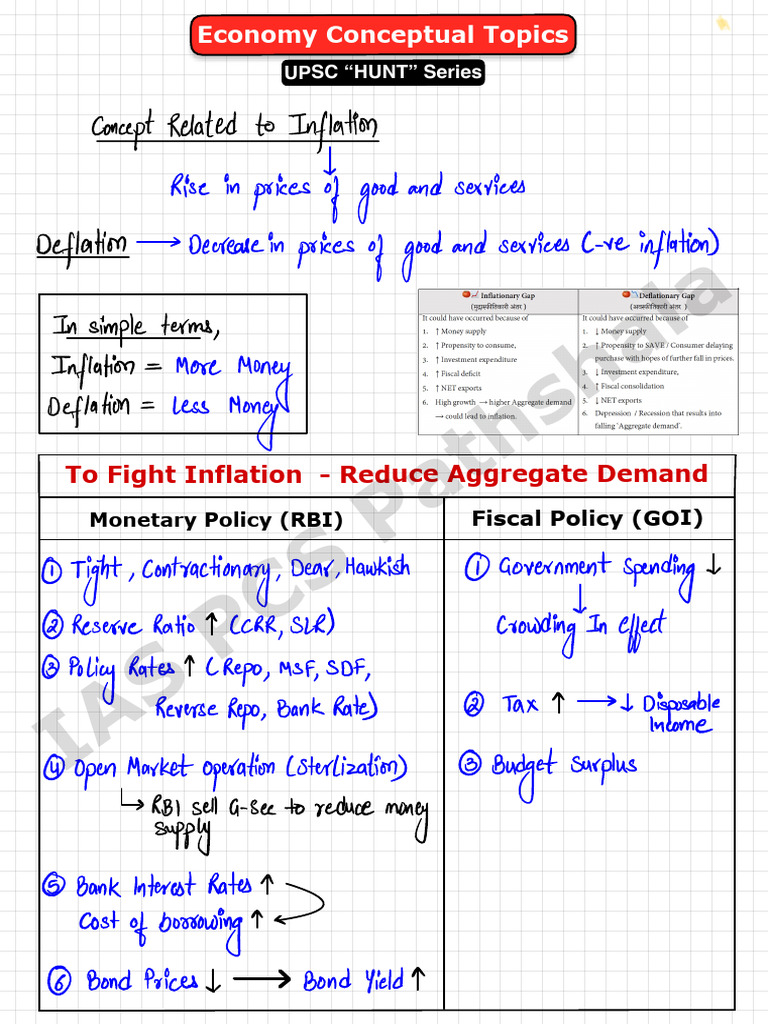 Economy Conceptual Topics
UPSC “HUNT” Series
Concept Related to Inflation
Rise in prices of good and services
Deflation → Decrease in prices of good and services (-ve inflation)
In simple terms,
Inflation = More Money
Deflation = Less Money
Inflationary Gap
(मुद्रास्फीतिकारी अंतर )
It could have occurred because of
1. ↑ Money supply
2. ↑ Propensity to consume,
3. ↑ Investment expenditure
4. ↑ Fiscal deficit
5. ↑ NET exports
6. High growth → higher Aggregate demand
→ could lead to inflation.
Deflationary Gap
(अवस्फीतिकारी अंतर )
It could have occurred because of
1. ↓ Money supply
2. ↑ Propensity to SAVE / Consumer delaying
purchase with hopes of further fall in prices.
3. ↓ Investment expenditure,
4. ↑ Fiscal consolidation
5. ↓ NET exports
6. Depression / Recession that results into
falling 'Aggregate demand'.
To Fight Inflation - Reduce Aggregate Demand
Monetary Policy (RBI)
① Tight, Contractionary, Dear, Hawkish
② Reserve Ratio ↑ (CRR, SLR)
③ Policy Rates ↑ (Repo, MSF, SDF,
Reverse Repo, Bank Rate)
④ Open Market Operation (Sterlization)
↳ RBI sell G-Sec to reduce money
supply
⑤ Bank Interest Rates ↑
Cost of borrowing ↑
⑥ Bond Prices ↓ → Bond Yield ↑
Fiscal Policy (GOI)
① Government Spending ↓
↓
Crowding In effect
② Tax ↑ → ↓ Disposable
Income
③ Budget Surplus
IAS PCS Pathshala